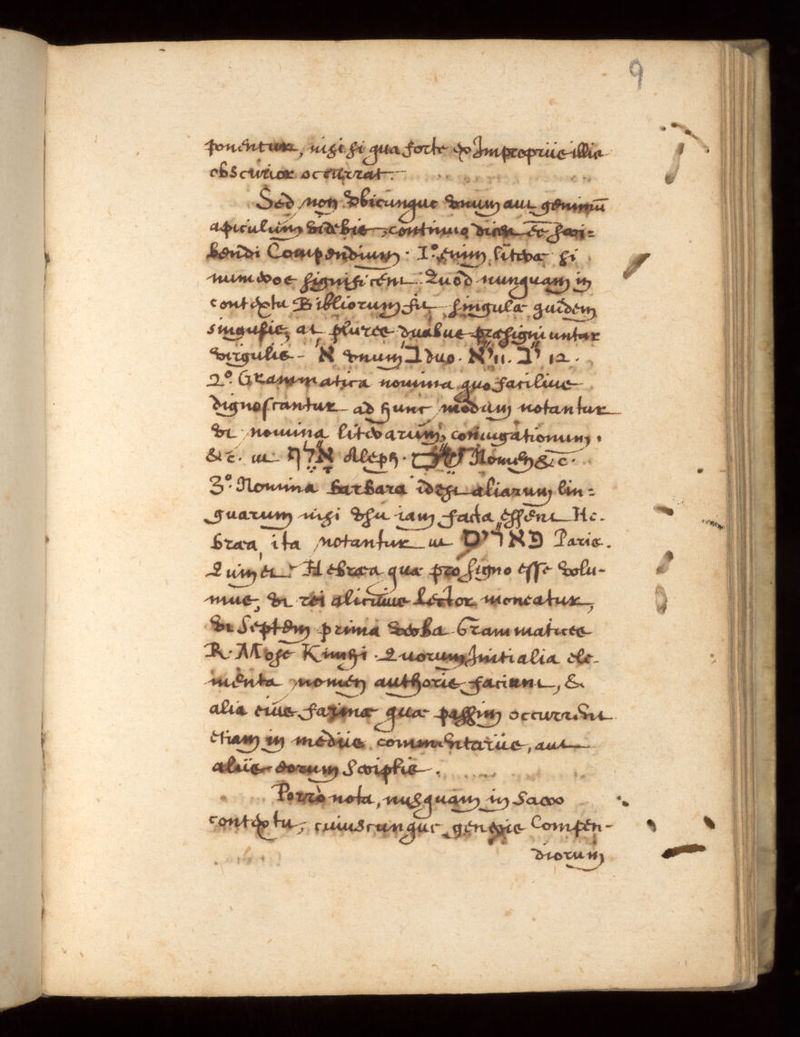 9
ponentur, nisi si qua forte ex Impropriis illis
obscurior occurrat.
Sed non ubicunque unum aut geminū
apiculum videbis, continuo dices esse scri=
bendi Compendium. I°. enim literæ si
numeros significent. Quod nunquam in
contextu Bibliorum fit, singulæ quidem
singulis, at plures duabus præsigniuntur
virgulis - א׳ unum ב׳ duo. י״א 11. י״ב 12.
2°. Grammatica nomina quo facilius
dignoscantur ad hunc modum notantur
ut nomina literarum, coniugationum,
&c. ut אל״ף Aleph. Nomen &c.
3°. Nomina barbara idest aliarum lin=
guarum nisi usu iam facta essent He-
bræa, ita notantur ut פארי״ס Paris.
Quin et Hebræa quæ pro signo esse volu-
mus, ut rei alicuius lector moneatur,
ut Septem prima verba Grammatices
R. Mose Kimhi. Quorum Initialia ele-
menta nomen authoris faciunt, &
alia eius farinæ quæ passim occurrunt
etiam in mediis commentariis, aut
aliis eorum Scriptis.
Porro nota, nusquam in Sacro
contextu, cuiuscunque generis Compen-
diorum